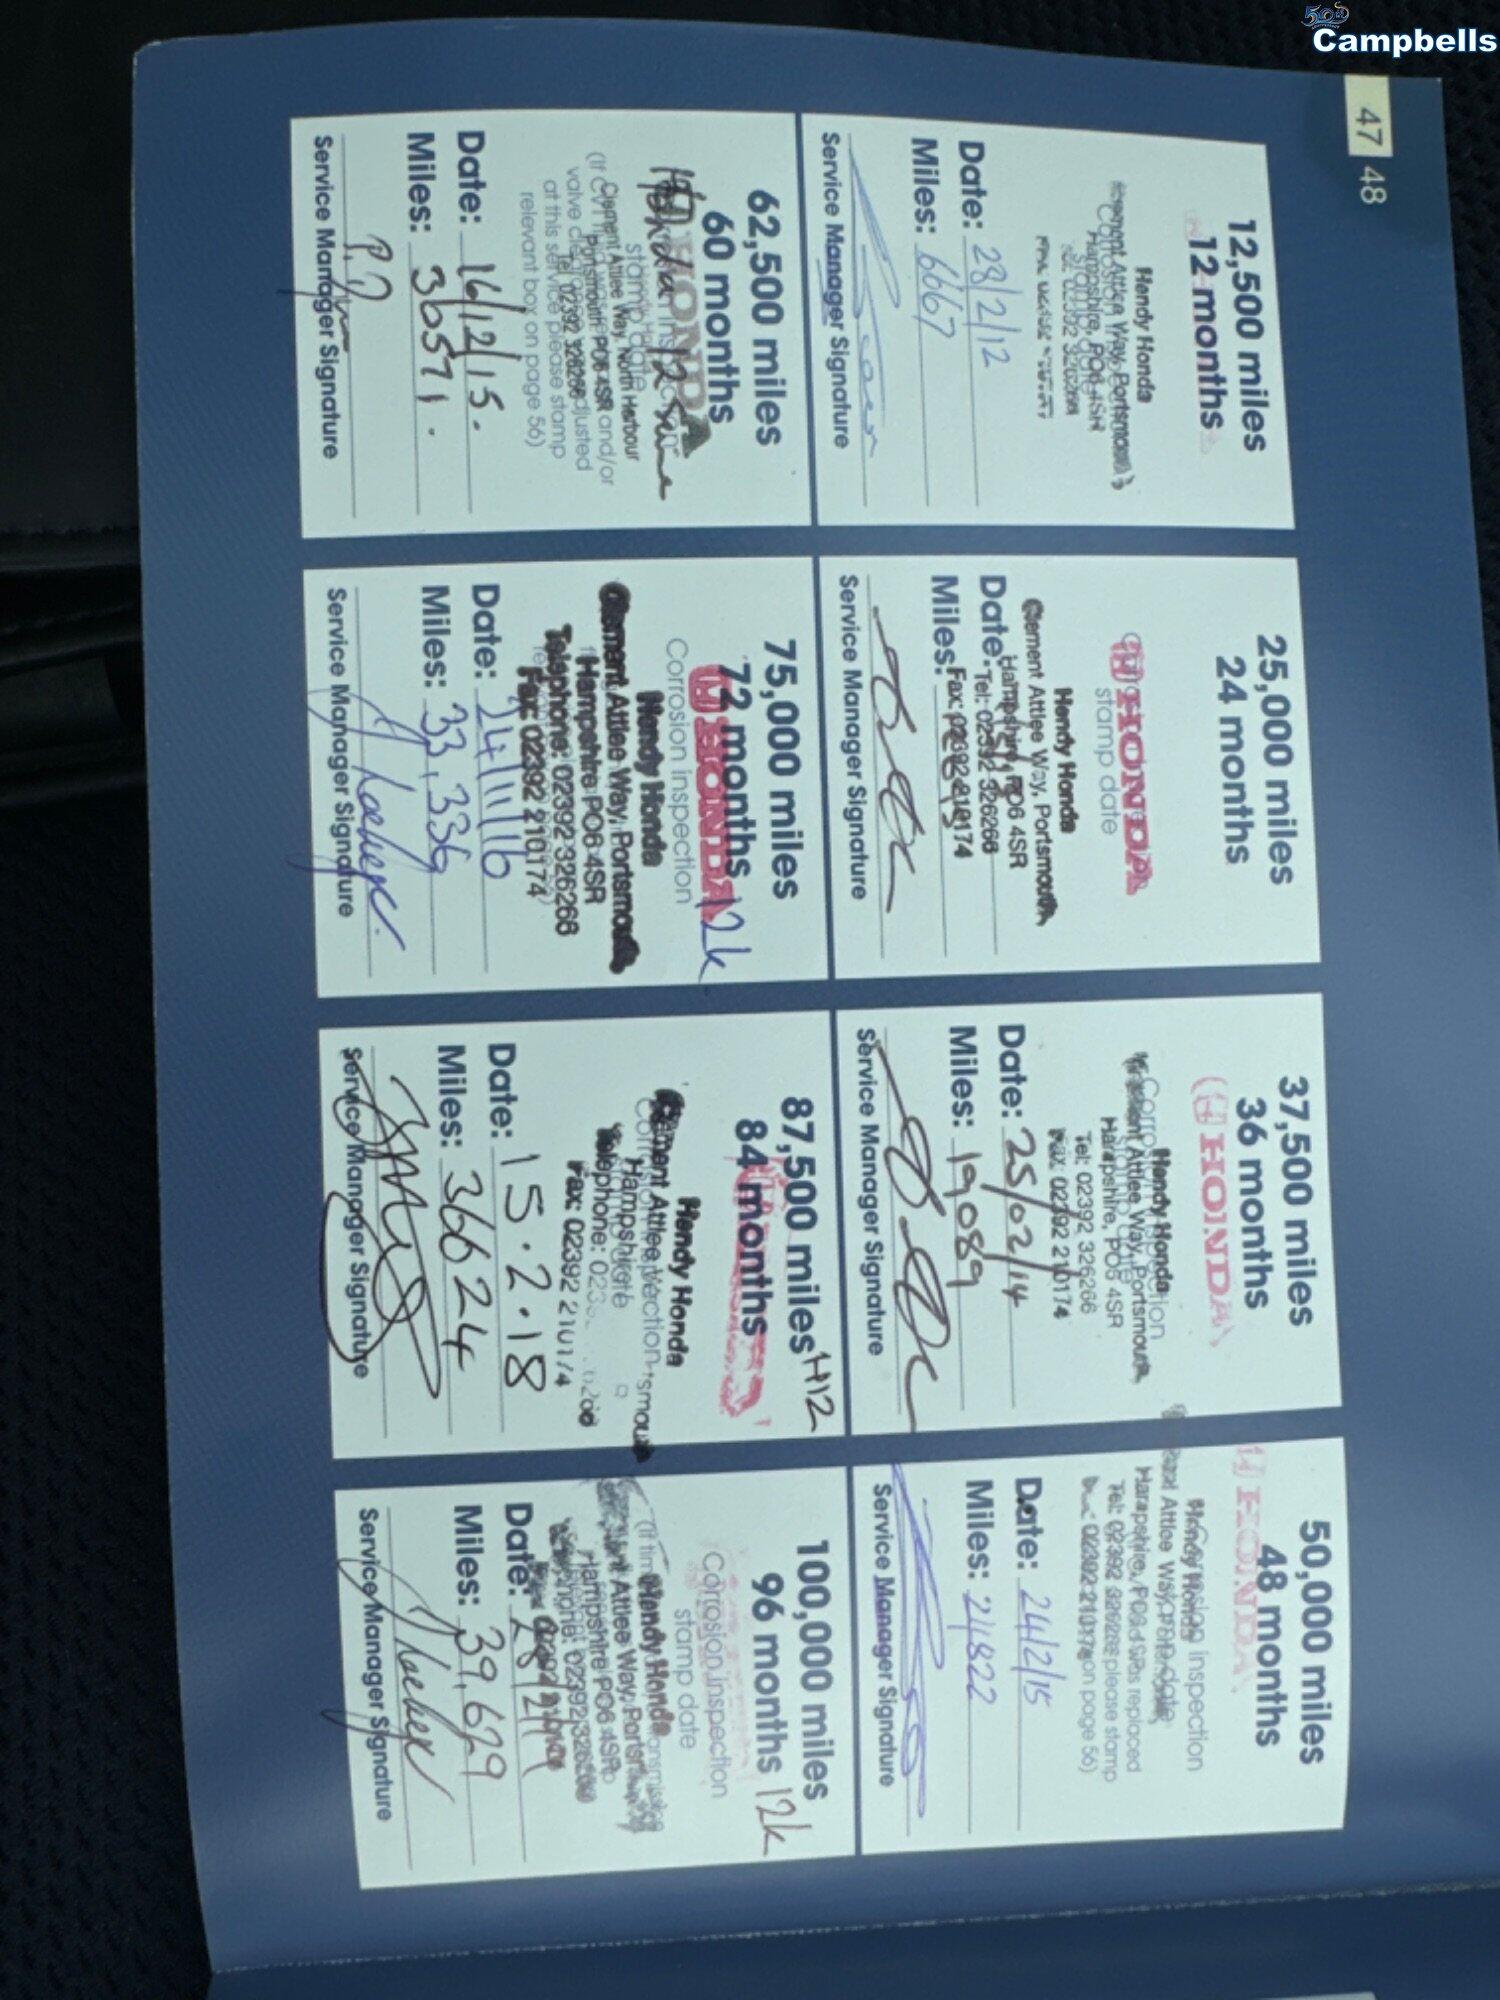 50th
Campbells
47 48
12,500 miles
12 months
Hendy Honda
Clement Attlee Way, Portsmouth
Hampshire, PO6 4SR
Date: 28/2/12
Miles: 6667
Service Manager Signature
25,000 miles
24 months
HONDA
stamp date
Hendy Honda
Clement Attlee Way, Portsmouth
Hampshire, PO6 4SR
Date: Tel: 02392 326266
Miles: Fax: 02392 210174
Service Manager Signature
37,500 miles
36 months
HONDA
Hendy Honda
Attlee Way, Portsmouth
Hampshire, PO6 4SR
Tel: 02392 326266
Fax: 02392 210174
Date: 25/02/14
Miles: 19089
Service Manager Signature
50,000 miles
48 months
HONDA
Corrosion inspection
Hendy Honda
Attlee Way, Portsmouth
Hampshire, PO6 4SR replaced
Tel: 02392 326266 please stamp
02392 210174 on page 56)
Date: 24/2/15
Miles: 24822
Service Manager Signature
62,500 miles
60 months
HONDA
Honda 12
stamp date
Clement Attlee Way, North Harbour
Portsmouth PO6 4SR and/or
valve clearance adjusted
Tel: 02392 326266
at this service please stamp
relevant box on page 56)
Date: 16/12/15.
Miles: 36571.
Service Manager Signature
75,000 miles
72 months 12k
HONDA
Corrosion inspection
Hendy Honda
Clement Attlee Way, Portsmouth
Hampshire PO6 4SR
Telephone: 02392 326266
Fax: 02392 210174
Date: 24/11/16
Miles: 33,336
Service Manager Signature
87,500 miles H12
84 months
Hendy Honda
Clement Attlee Way, Portsmouth
Hampshire
Telephone:
Fax: 02392 210174
Date: 15.2.18
Miles: 36624
Service Manager Signature
100,000 miles
96 months 12k
Corrosion inspection
stamp date
Hendy Honda
Attlee Way, Portsmouth
Hampshire PO6 4SR
02392 326266
Date:
Miles: 39,629
Service Manager Signature